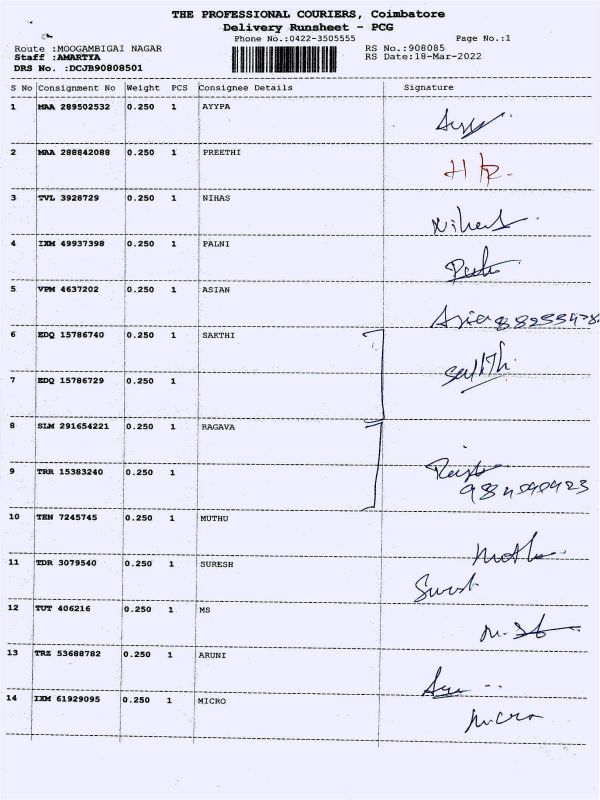 THE PROFESSIONAL COURIERS, Coimbatore
Delivery Runsheet - PCG
Phone No.:0422-3505555 Page No.:1
Route :MOOGAMBIGAI NAGAR RS No.:908085
Staff :AMARTYA RS Date:18-Mar-2022
DRS No. :DCJB90808501
S No Consignment No Weight PCS Consignee Details Signature
1 MAA 289502532 0.250 1 AYYPA
2 MAA 288842088 0.250 1 PREETHI
3 TVL 3928729 0.250 1 NIHAS Nihas
4 IXM 49937398 0.250 1 PALNI
5 VPM 4637202 0.250 1 ASIAN Asian
6 EDQ 15786740 0.250 1 SAKTHI Sakthi
7 EDQ 15786729 0.250 1
8 SLM 291654221 0.250 1 RAGAVA
9 TRR 15383240 0.250 1
10 TEN 7245745 0.250 1 MUTHU
11 TDR 3079540 0.250 1 SURESH
12 TUT 406216 0.250 1 MS
13 TRZ 53688782 0.250 1 ARUNI
14 IXM 61929095 0.250 1 MICRO micro